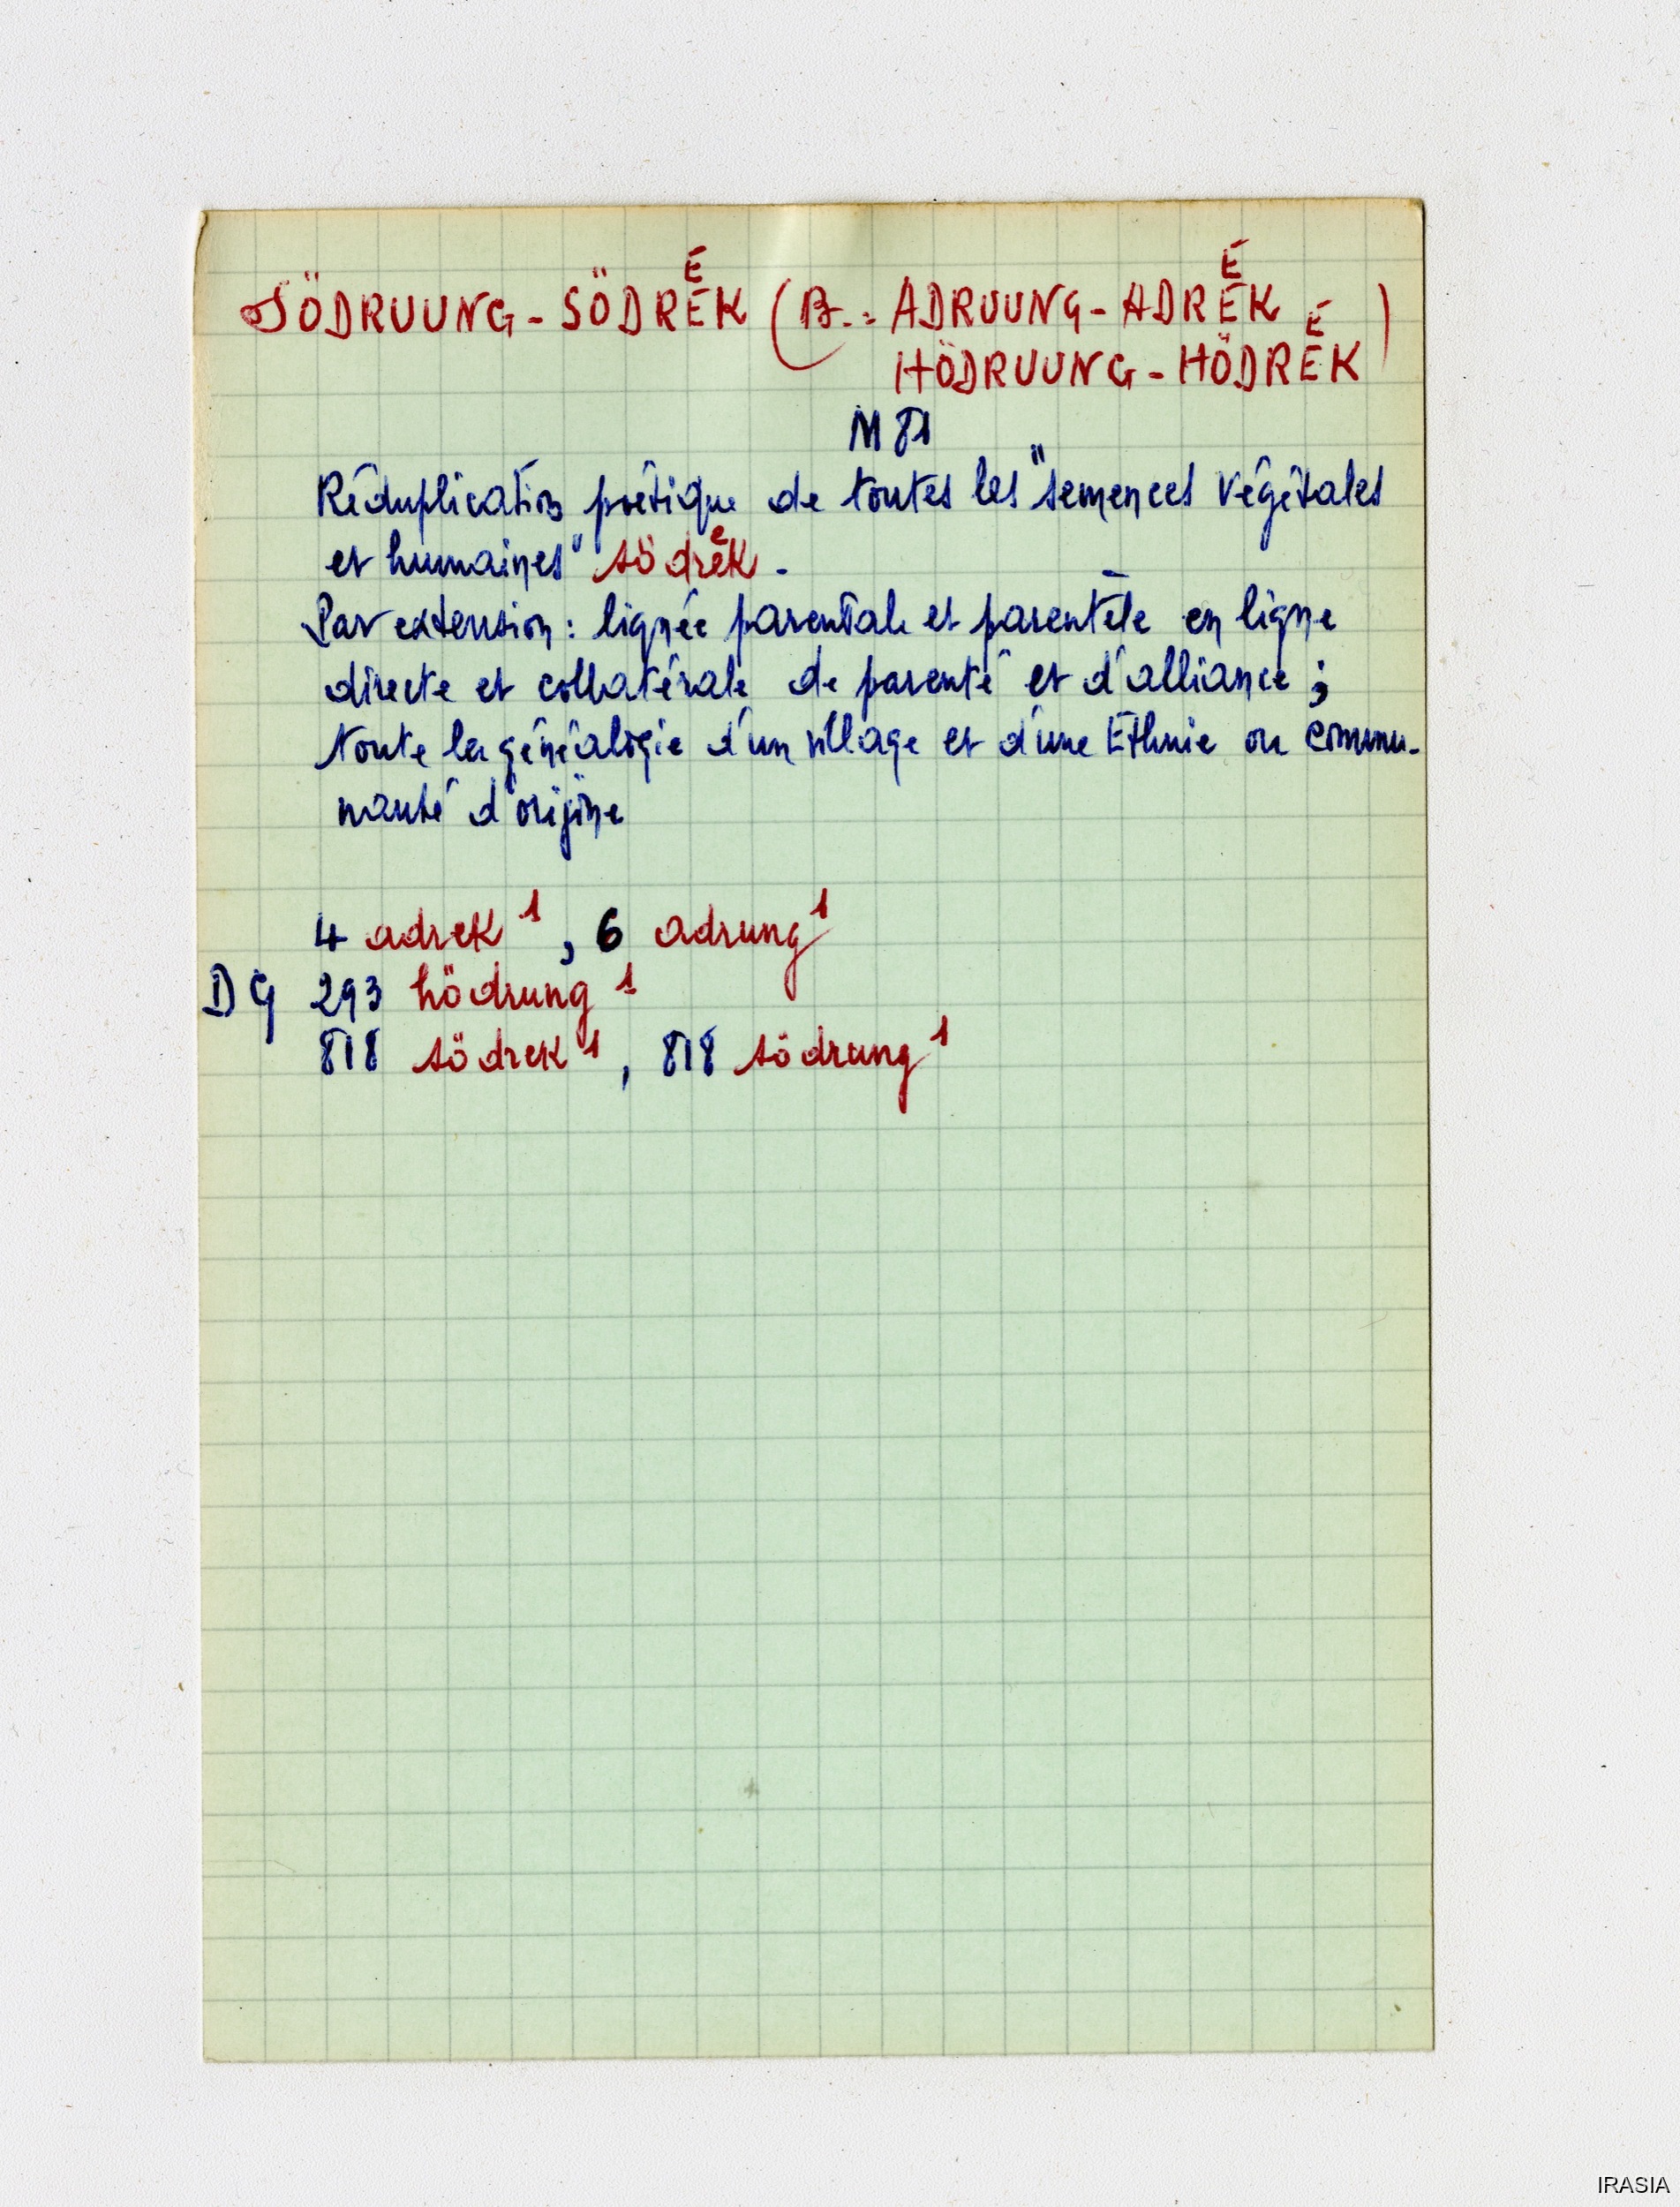 SÖDRUUNG - SÖDRÉK (B. : ADRUUNG - ADRÉK
HÖDRUUNG - HÖDRÉK)
M 81
Réduplication poétique de toutes les "semences végétales
et humaines" södrek.
Par extension : lignée parentale et parentèle en ligne
directe et collatérale de parenté et d'alliance ;
toute la généalogie d'un village et d'une Ethnie ou commu-
nauté d'origine
4 adrek¹, 6 adrung¹
DG 293 hödrung¹
818 södrek¹, 818 södrung¹
IRASIA